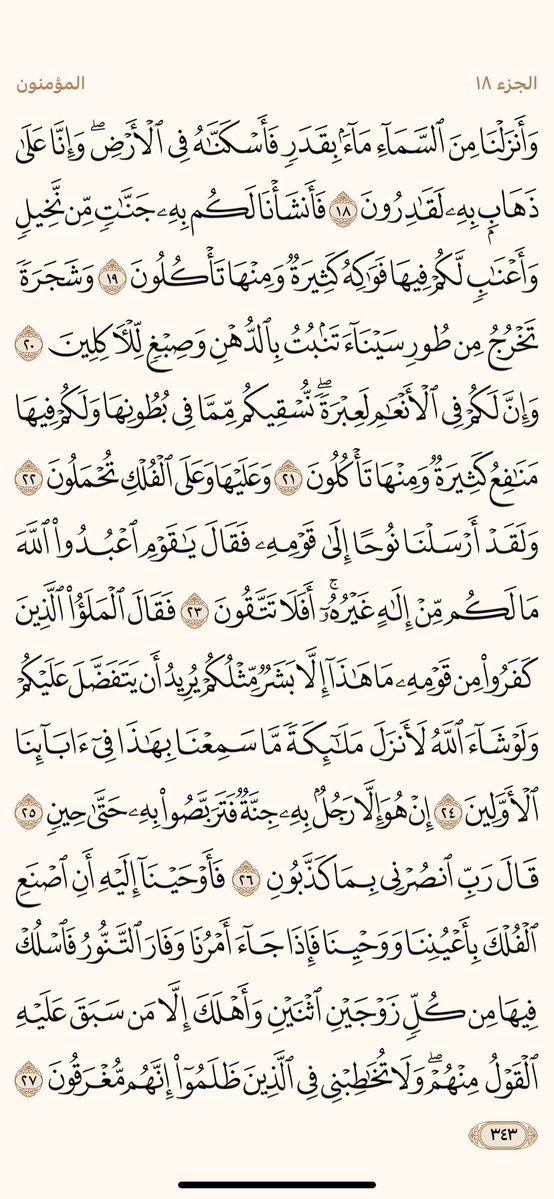 الجزء ١٨
المؤمنون
وَأَنزَلْنَا مِنَ ٱلسَّمَآءِ مَآءًۢ بِقَدَرٍ فَأَسْكَنَّٰهُ فِى ٱلْأَرْضِ ۖ وَإِنَّا عَلَىٰ
ذَهَابٍۭ بِهِۦ لَقَٰدِرُونَ ١٨ فَأَنشَأْنَا لَكُم بِهِۦ جَنَّٰتٍ مِّن نَّخِيلٍ
وَأَعْنَٰبٍ لَّكُمْ فِيهَا فَوَٰكِهُ كَثِيرَةٌ وَمِنْهَا تَأْكُلُونَ ١٩ وَشَجَرَةً
تَخْرُجُ مِن طُورِ سَيْنَآءَ تَنۢبُتُ بِٱلدُّهْنِ وَصِبْغٍ لِّلْـَٔاكِلِينَ ٢٠
وَإِنَّ لَكُمْ فِى ٱلْأَنْعَٰمِ لَعِبْرَةً ۖ نُّسْقِيكُم مِّمَّا فِى بُطُونِهَا وَلَكُمْ فِيهَا
مَنَٰفِعُ كَثِيرَةٌ وَمِنْهَا تَأْكُلُونَ ٢١ وَعَلَيْهَا وَعَلَى ٱلْفُلْكِ تُحْمَلُونَ ٢٢
وَلَقَدْ أَرْسَلْنَا نُوحًا إِلَىٰ قَوْمِهِۦ فَقَالَ يَٰقَوْمِ ٱعْبُدُوا۟ ٱللَّهَ
مَا لَكُم مِّنْ إِلَٰهٍ غَيْرُهُۥٓ ۚ أَفَلَا تَتَّقُونَ ٢٣ فَقَالَ ٱلْمَلَؤُا۟ ٱلَّذِينَ
كَفَرُوا۟ مِن قَوْمِهِۦ مَا هَٰذَآ إِلَّا بَشَرٌ مِّثْلُكُمْ يُرِيدُ أَن يَتَفَضَّلَ عَلَيْكُمْ
وَلَوْ شَآءَ ٱللَّهُ لَأَنزَلَ مَلَٰٓئِكَةً مَّا سَمِعْنَا بِهَٰذَا فِىٓ ءَابَآئِنَا
ٱلْأَوَّلِينَ ٢٤ إِنْ هُوَ إِلَّا رَجُلٌۢ بِهِۦ جِنَّةٌ فَتَرَبَّصُوا۟ بِهِۦ حَتَّىٰ حِينٍ ٢٥
قَالَ رَبِّ ٱنصُرْنِى بِمَا كَذَّبُونِ ٢٦ فَأَوْحَيْنَآ إِلَيْهِ أَنِ ٱصْنَعِ
ٱلْفُلْكَ بِأَعْيُنِنَا وَوَحْيِنَا فَإِذَا جَآءَ أَمْرُنَا وَفَارَ ٱلتَّنُّورُ فَٱسْلُكْ
فِيهَا مِن كُلٍّ زَوْجَيْنِ ٱثْنَيْنِ وَأَهْلَكَ إِلَّا مَن سَبَقَ عَلَيْهِ
ٱلْقَوْلُ مِنْهُمْ ۖ وَلَا تُخَٰطِبْنِى فِى ٱلَّذِينَ ظَلَمُوٓا۟ إِنَّهُم مُّغْرَقُونَ ٢٧
٣٤٣